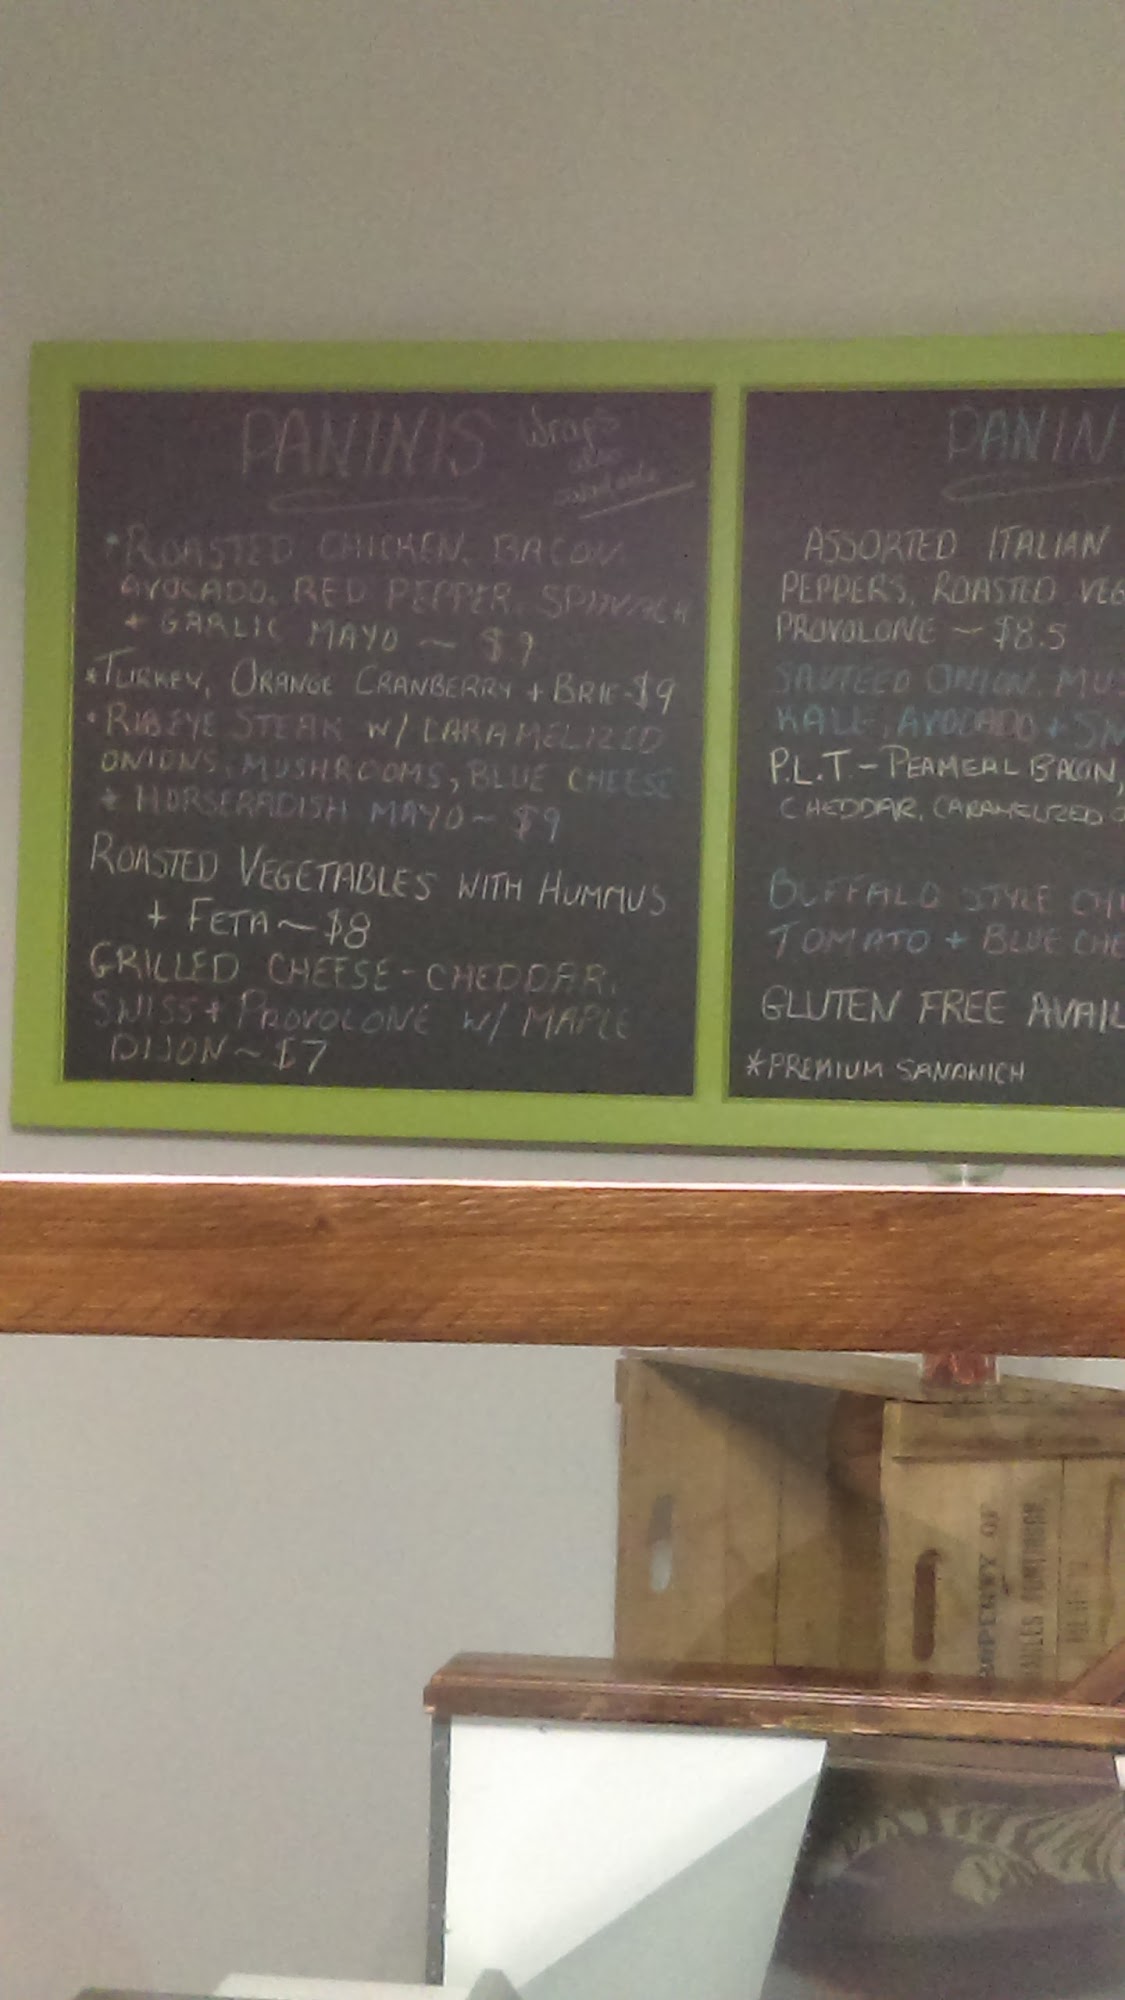 PANINIS Wraps
also
available
*ROASTED CHICKEN, BACON,
AVOCADO, RED PEPPER, SPINACH
+ GARLIC MAYO ~ $9
*TURKEY, ORANGE CRANBERRY + BRIE-$9
*RIBEYE STEAK W/ CARAMELIZED
ONIONS, MUSHROOMS, BLUE CHEESE
+ HORSERADISH MAYO ~ $9
ROASTED VEGETABLES WITH HUMMUS
+ FETA ~ $8
GRILLED CHEESE - CHEDDAR,
SWISS + PROVOLONE W/ MAPLE
DIJON ~ $7
PANIN
ASSORTED ITALIAN
PEPPERS, ROASTED VEG
PROVOLONE ~ $8.5
SAUTEED ONION, MUS
KALE, AVOCADO + SW
P.L.T. - PEAMEAL BACON,
CHEDDAR, CARAMELIZED O
BUFFALO STYLE CHI
TOMATO + BLUE CHE
GLUTEN FREE AVAIL
*PREMIUM SANDWICH
OPERTY OF